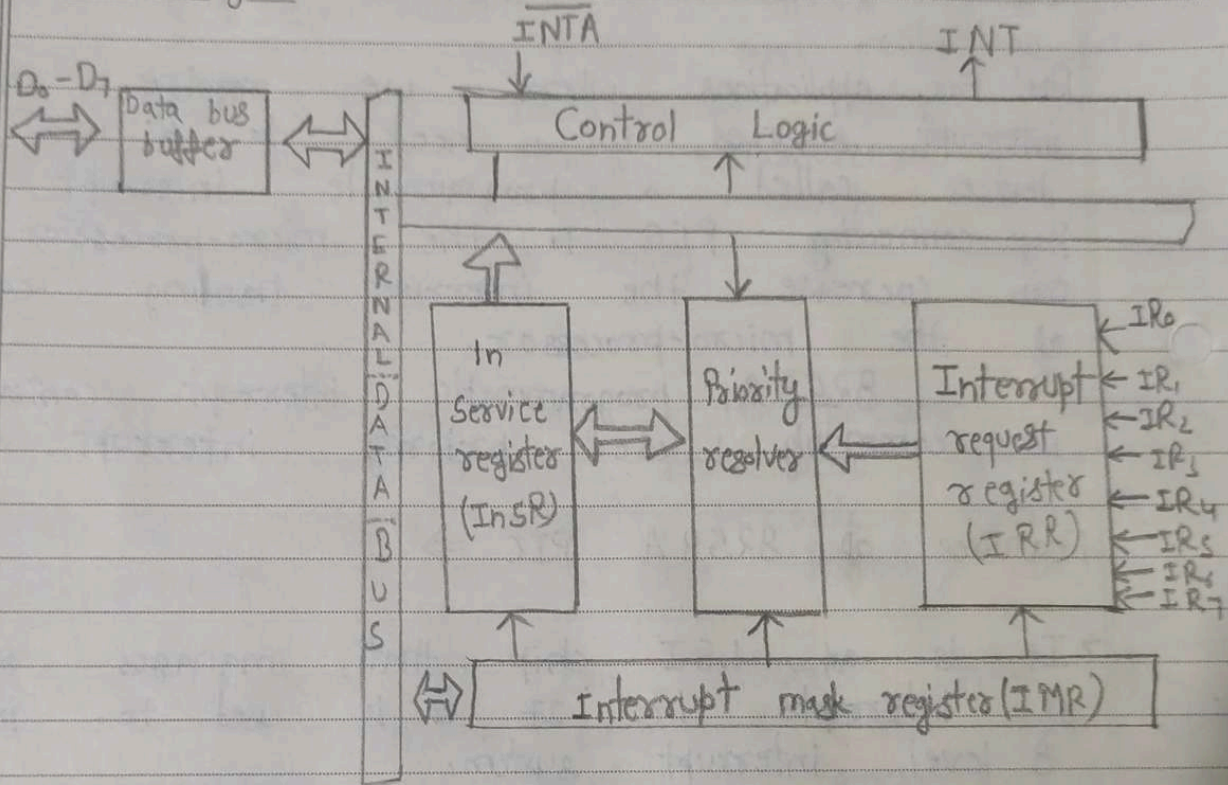 INTA
INT
D0-D7
Data bus
buffer
Control Logic
INTERNAL DATA BUS
In
Service
register
(InSR)
Priority
resolver
Interrupt
request
register
(IRR)
IR0
IR1
IR2
IR3
IR4
IR5
IR6
IR7
Interrupt mask register (IMR)